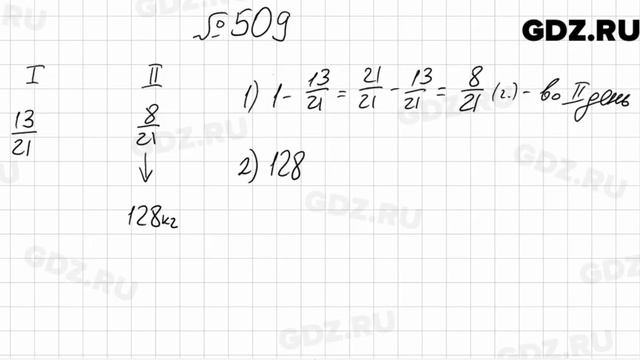 № 509
GDZ.RU
I II
13/21 8/21
1) 1 - 13/21 = 21/21 - 13/21 = 8/21 (г.) - во II день
↓
2) 128
128кг
GDZ.RU
GDZ.RU
GDZ.RU
GDZ.RU
GDZ.RU
GDZ.RU
GDZ.RU